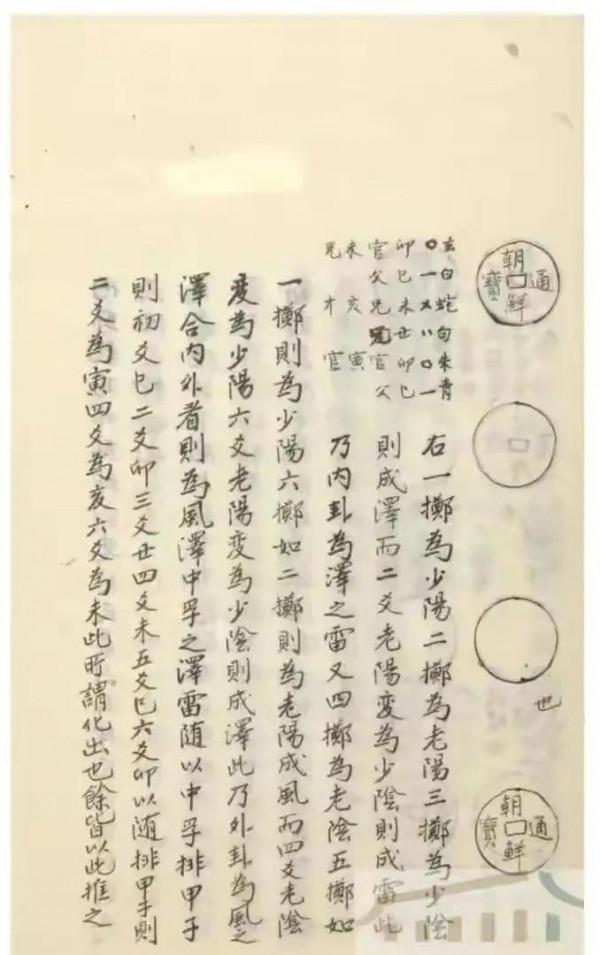 朝鮮通寶
也
朝鮮通寶
玄白蛇句朱青
〇一乂〃〇一
卯巳未丑卯巳
官父兄兄官父
未亥寅
兄才官
右一擲為少陽二擲為老陽三擲為少陰
則成澤而二爻老陽变為少陰則成雷此
乃內卦為澤之雷又四擲為老陰五擲如
一擲則為少陽六擲如二擲則為老陽成風而四爻老陰
变為少陽六爻老陽变為少陰則成澤此乃外卦為風之
澤合內外者則為風澤中孚之澤雷随以中孚排甲子
則初爻巳二爻卯三爻丑四爻未五爻巳六爻卯以随排甲子則
二爻為寅四爻為亥六爻為未此所謂化出也餘皆以此推之